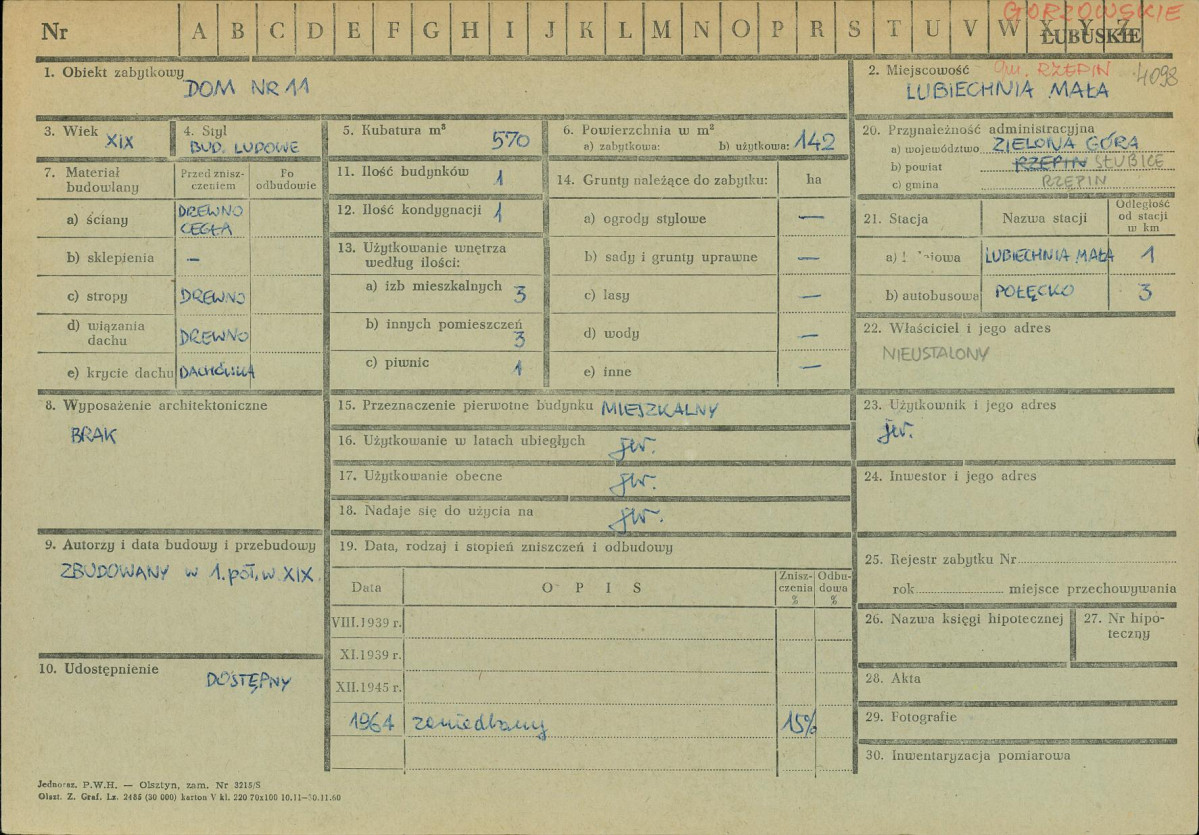 GORZOWSKIE
Nr A B C D E F G H I J K L M N O P R S T U V W X Y Z
ŁUBUSKIE
1. Obiekt zabytkowy
DOM NR 11
2. Miejscowość gm. RZEPIN 4098
LUBIECHNIA MAŁA
3. Wiek XIX
4. Styl
BUD. LUDOWE
5. Kubatura m³ 570
6. Powierzchnia w m²
a) zabytkowa: b) użytkowa: 142
20. Przynależność administracyjna
a) województwo ZIELONA GÓRA
b) powiat RZEPIN SŁUBICE
c) gmina RZEPIN
7. Materiał budowlany
Przed znisz-
czeniem
Po
odbudowie
a) ściany DREWNO
CEGŁA
b) sklepienia –
c) stropy DREWNO
d) wiązania
dachu DREWNO
e) krycie dachu DACHÓWKA
11. Ilość budynków 1
12. Ilość kondygnacji 1
13. Użytkowanie wnętrza
według ilości:
a) izb mieszkalnych 3
b) innych pomieszczeń
3
c) piwnic 1
14. Grunty należące do zabytku: ha
a) ogrody stylowe —
b) sady i grunty uprawne —
c) lasy —
d) wody —
e) inne —
21. Stacja Nazwa stacji
Odległość
od stacji
w km
a) LUBIECHNIA MAŁA 1
b) autobusowa POŁĘCKO 3
22. Właściciel i jego adres
NIEUSTALONY
8. Wyposażenie architektoniczne
BRAK
15. Przeznaczenie pierwotne budynku MIESZKALNY
16. Użytkowanie w latach ubiegłych jw.
17. Użytkowanie obecne jw.
18. Nadaje się do użycia na jw.
23. Użytkownik i jego adres
jw.
24. Inwestor i jego adres
9. Autorzy i data budowy i przebudowy
ZBUDOWANY w 1. poł. w. XIX.
19. Data, rodzaj i stopień zniszczeń i odbudowy
Data O P I S
Znisz-
czenia
%
Odbu-
dowa
%
VIII.1939 r.
XI.1939 r.
XII.1945 r.
1964 zaniedbany 15%
25. Rejestr zabytku Nr
rok miejsce przechowywania
26. Nazwa księgi hipotecznej
27. Nr hipo-
teczny
10. Udostępnienie
DOSTĘPNY
28. Akta
29. Fotografie
30. Inwentaryzacja pomiarowa
Jednoraz. P.W.H. — Olsztyn, zam. Nr 3215/S
Olszt. Z. Graf. Lz. 2485 (30 000) karton V kl. 220 70x100 10.11—30.11.60